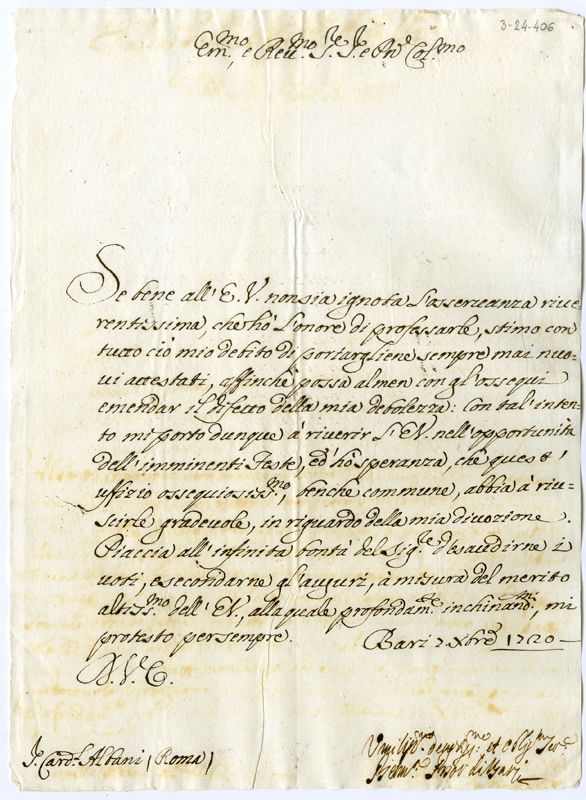 3-24-406
Em.mo, e Reu.mo S.re S.re P.ne Col.mo
Se bene all'E.V. non sia ignota l'osseruanza riue-
rentissima, che hò l'onore di professarle, stimo con
tutto ciò mio debito di portargliene sempre mai nuo-
ui attestati, affinche possa almen con gl'ossequi
emendar il difetto della mia debolezza: Con tal'inten-
to mi porto dunque à riuerir l'EV. nell'opportunità
dell'imminenti Feste, ed hò speranza, che quest'
uffizio ossequiosiss.mo, benche commune, abbia à riu-
scirle gradeuole, in riguardo della mia diuozione.
Piaccia all'infinita bontà del Sig.re d'esaudirne i
uoti, e secondarne gl'augurÿ, à misura del merito
altiss.mo dell'EV., alla quale profondam.te inchinand.mi, mi
protesto per sempre. Bari 2 Xbre 1720
D.V.E.
S. Card.l Albani (Roma)
Vmiliss.mo deuotiss.mo et obl.mo ser.e
di Bari